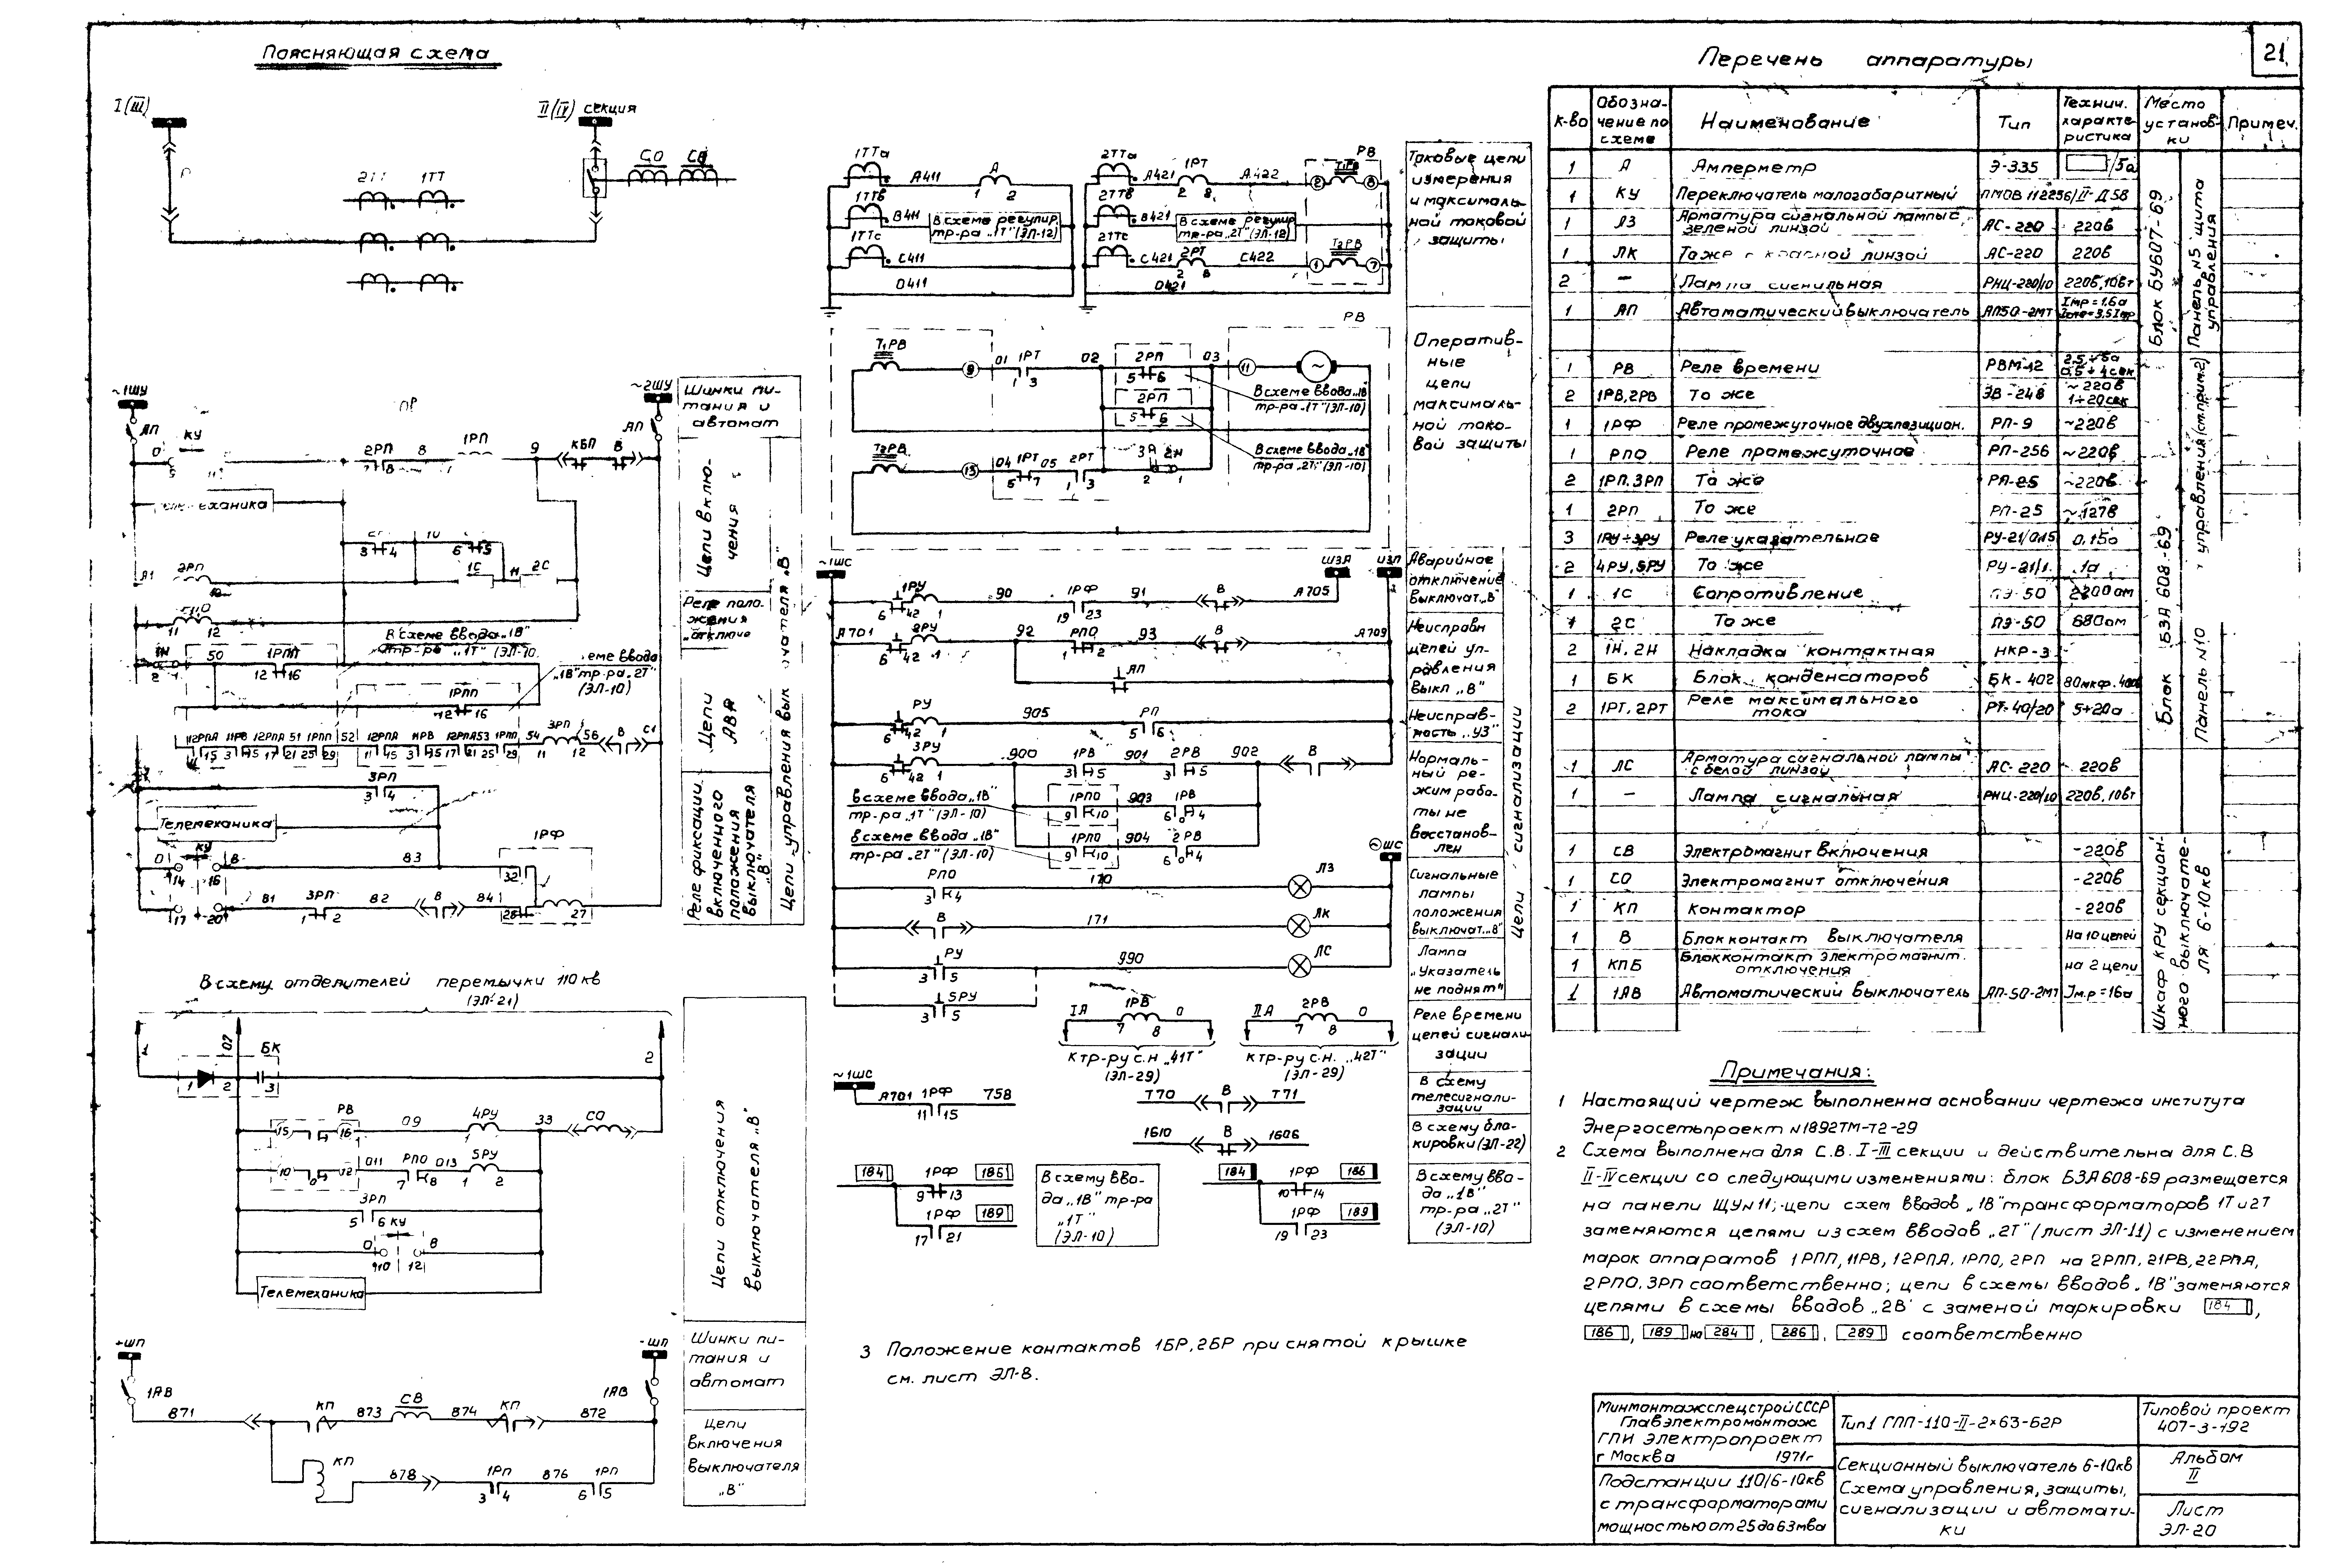 21
Поясняющая схема
I (III)
II (IV) секция
СО СВ
2ТТ 1ТТ
~1ШУ
~2ШУ
Шинки пи-
тания и
автомат
АП КУ
АП
0 2РП 8 1РП 9 КБП В
5 7 8
Цепи вклю-
чения
механика
3 4 10 6 5
А1 2РП 1С Н 2С
Реле поло-
жения
„отключе
11 12
В схеме ввода „1В"
тр-ра „1Т" (ЭЛ-10
1Н 50 1РПП
2 1 12 16
еме ввода
„1В" тр-ра „2Т"
(ЭЛ-10)
1РПП
12 16
Цепи
АВР
12РПА 11РВ 12РПА 51 1РПП 52 12РПА 11РВ 12РПА 53 1РПП 54 3РП 56 В С1
11 15 3 5 17 21 25 29 11 15 3 5 17 21 25 29 11 12
3РП
3 4
Телемеханика
0 КУ В 83
14 16 32
1РФ
81 3РП 82 В 84
17 20 1 2 28 27
Реле фиксации
включенного
положения
выключателя
„В"
Цепи управления выключателя „В"
В схему отделителей перемычки 110 кв
(ЭЛ-21)
1 07 БК 2
1 2 3
РВ
15 16 09 4РУ 33 СО
1
10 12 011 РПО 013 5РУ
7 8 1 2
3РП
5 6 КУ
0 В
9 10 12
Телемеханика
Цепи отключения
выключателя „В"
+ШП
-ШП
Шинки пи-
тания и
автомат
1АВ 1АВ
871 КП 873 СВ 874 КП 872
КП 878 1РП 876 1РП
3 4 6 5
Цепи
включения
выключателя
„В"
1ТТа А411 А
1 2
1ТТв В411
В схеме регулир.
тр-ра „1Т" (ЭЛ-12)
1ТТс С411
О411
2ТТа А421 1РТ А422 РВ
2 8 2 Т1РВ 8
2ТТв В421
В схеме регулир
тр-ра „2Т" (ЭЛ-12)
2ТТс С421 2РТ С422
2 8 1 Т2РВ 7
О421
Токовые цепи
измерения
и максималь-
ной токовой
защиты
РВ
Т1РВ 9 01 1РТ 02 2РП 03 11
1 3 5 6
В схеме ввода „1В"
тр-ра „1Т" (ЭЛ-10)
2РП
5 6
В схеме ввода „1В"
тр-ра „2Т" (ЭЛ-10)
Т2РВ 13 04 1РТ 05 2РТ ЗА 2Н
5 7 1 3 2 1
Оператив-
ные
цепи
максималь-
ной токо-
вой защиты
~1ШС
ШЗА ШЗП
1РУ 90 1РФ 91 В А705
6 42 1 19 23
Аварийное
отключение
выключат. „В"
А701 2РУ 92 РПО 93 В А709
6 42 1 1 2
АП
Неисправн
цепей уп-
равления
выкл „В"
РУ 905 РП
6 42 1 5 6
Неисправ-
ность „УЗ"
3РУ 900 1РВ 901 2РВ 902 В
6 42 1 3 5 3 5
В схеме ввода „1В"
тр-ра „1Т" (ЭЛ-10)
1РПО 903 1РВ
9 10 6 4
В схеме ввода „1В"
тр-ра „2Т" (ЭЛ-10)
1РПО 904 2РВ
9 10 6 4
Нормаль-
ный ре-
жим рабо-
ты не
восстанов-
лен
~ШС
РПО 170 ЛЗ
3 4
В 171 ЛК
Сигнальные
лампы
положения
выключат. „В"
РУ 990 ЛС
3 5
5РУ
3 5
Лампа
„Указатель
не поднят"
Цепи сигнализации
IА 1РВ 0
7 8
К тр-ру с.н „41Т"
(ЭЛ-29)
IIА 2РВ 0
7 8
К тр-ру с.н. „42Т"
(ЭЛ-29)
Реле времени
цепей сигнали-
зации
~1ШС
А701 1РФ 758
11 15
Т70 В Т71
В схему
телесигнали-
зации
1610 В 1606
В схему бло-
кировки (ЭЛ-22)
184 1РФ 186
9 13
1РФ 189
17 21
В схему вво-
да „1В" тр-ра
„1Т"
(ЭЛ-10)
184 1РФ 186
10 14
1РФ 189
19 23
В схему вво-
да „1В"
тр-ра „2Т"
(ЭЛ-10)
3 Положение контактов 1БР, 2БР при снятой крышке
см. лист ЭЛ-8.
Перечень аппаратуры
К-во Обозна-чение по схеме Наименование Тип Технич. характе-ристика Место установ-ки Примеч.
1 А Амперметр Э-335 /5а
1 КУ Переключатель малогабаритный ПМОВ 112256/II-Д58
1 ЛЗ Арматура сигнальной лампы с зеленой линзой АС-220 220в
1 ЛК То же с красной линзой АС-220 220в
2 — Лампа сигнальная РНЦ-220/10 220в, 10вт
1 АП Автоматический выключатель АП50-2МТ Iнр=1,6а Iотс=3,5Iнр
Блок БУ607-69
Панель N5 щита управления
1 РВ Реле времени РВМ-12 2,5÷5а 0,5÷4сек
2 1РВ, 2РВ То же ЭВ-248 ~220в 1÷20сек
1 1РФ Реле промежуточное двухпозицион. РП-9 ~220в
1 РПО Реле промежуточное РП-256 ~220в
2 1РП, 3РП То же РП-25 ~220в
1 2РП То же РП-25 ~127в
3 1РУ÷3РУ Реле указательное РУ-21/0.15 0,15а
2 4РУ, 5РУ То же РУ-21/1 1а
1 1С Сопротивление ПЭ-50 2200ом
1 2С То же ПЭ-50 680ом
2 1Н, 2Н Накладка контактная НКР-3
1 БК Блок конденсаторов БК-402 80мкф. 400в
2 1РТ, 2РТ Реле максимального тока РТ-40/20 5÷20а
Блок БЗА 608-69
Панель N10 управления (см. прим. 2)
1 ЛС Арматура сигнальной лампы с белой линзой АС-220 220в
1 — Лампа сигнальная РНЦ-220/10 220в, 10вт
1 СВ Электромагнит включения -220в
1 СО Электромагнит отключения -220в
1 КП Контактор -220в
1 В Блокконтакт выключателя На 10 цепей
1 КПБ Блокконтакт электромагнит. отключения на 2 цепи
1 1АВ Автоматический выключатель АП-50-2МТ Iн.р=16а
Шкаф КРУ секцион-
ного выключате-
ля 6-10кв
Примечания:
1 Настоящий чертеж выполнен на основании чертежа института
Энергосетьпроект N1892ТМ-Т2-29
2 Схема выполнена для С.В. I-III секции и действительна для С.В
II-IV секции со следующими изменениями: блок БЗА608-69 размещается
на панели ЩУ N11; цепи схем вводов „1В" трансформаторов 1Т и 2Т
заменяются цепями из схем вводов „2Т" (лист ЭЛ-11) с изменением
марок аппаратов 1РПП, 11РВ, 12РПА, 1РПО, 2РП на 2РПП, 21РВ, 22РПА,
2РПО, 3РП соответственно; цепи в схемы вводов „1В" заменяются
цепями в схемы вводов „2В" с заменой маркировки 184 ,
186 , 189 на 284 , 286 , 289 соответственно
Минмонтажспецстрой СССР
Главэлектромонтаж
ГПИ Электропроект
г Москва 1971г
Тип 1 ГПП-110-II-2×63-Б2Р
Типовой проект
407-3-192
Подстанции 110/6-10кв
с трансформаторами
мощностью от 25 до 63 мва
Секционный выключатель 6-10кв
Схема управления, защиты,
сигнализации и автомати-
ки
Альбом
II
Лист
ЭЛ-20